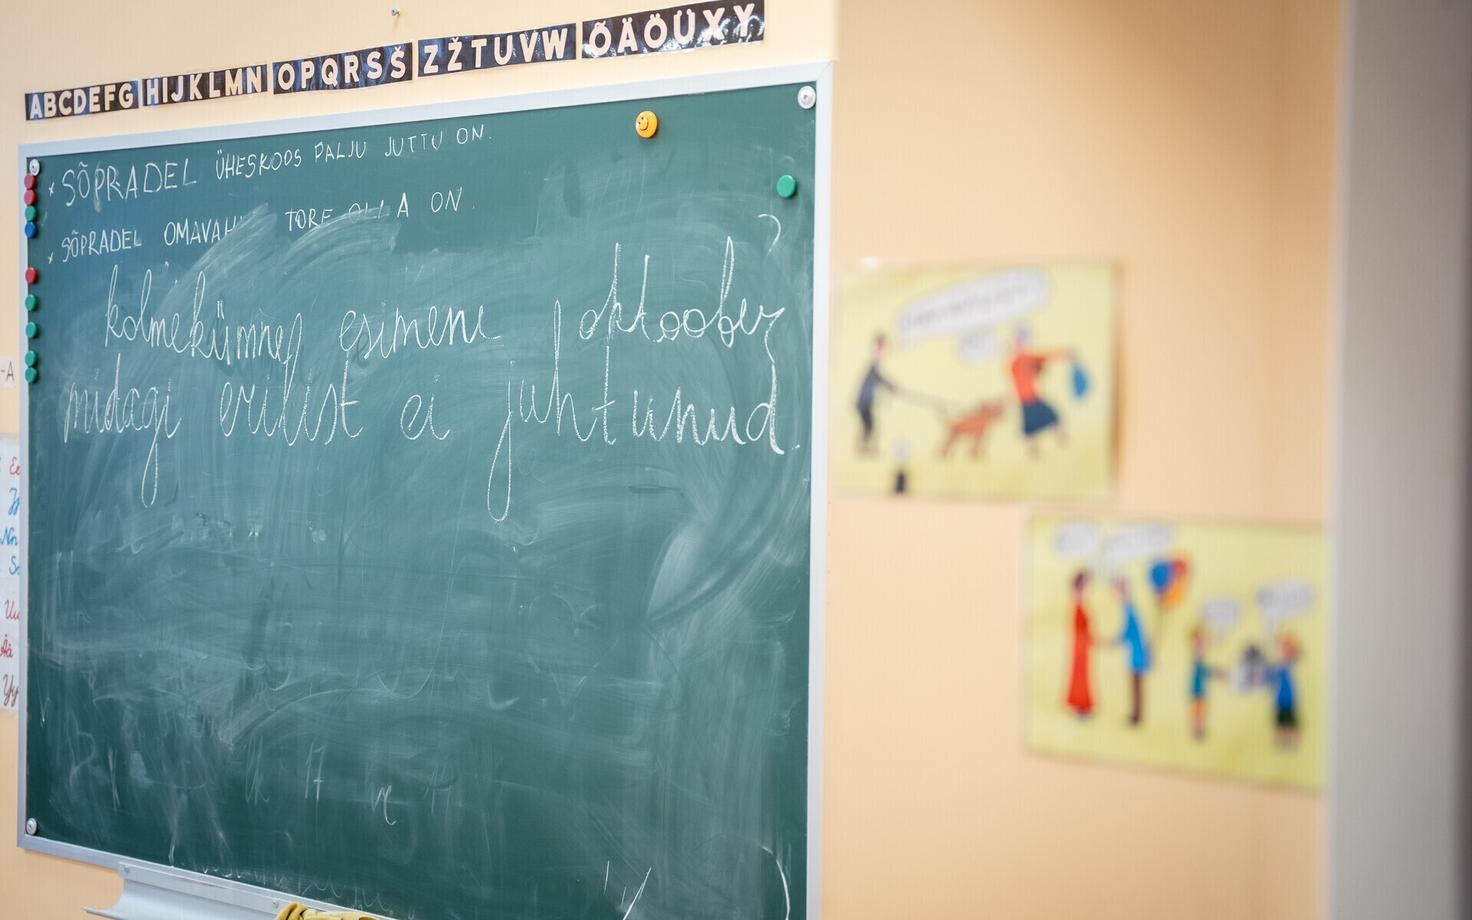 ABCDEFG HIJKLMN OPQRSŠ ZŽTUVW ÕÄÖÜXY
× SÕPRADEL ÜHESKOOS PALJU JUTTU ON.
× SÕPRADEL OMAVAH TORE OLLA ON.
kolmekümnes esimene oktoober
midagi erilist ei juhtunud.
-A
Nn
Uu
Ää
Yy
17